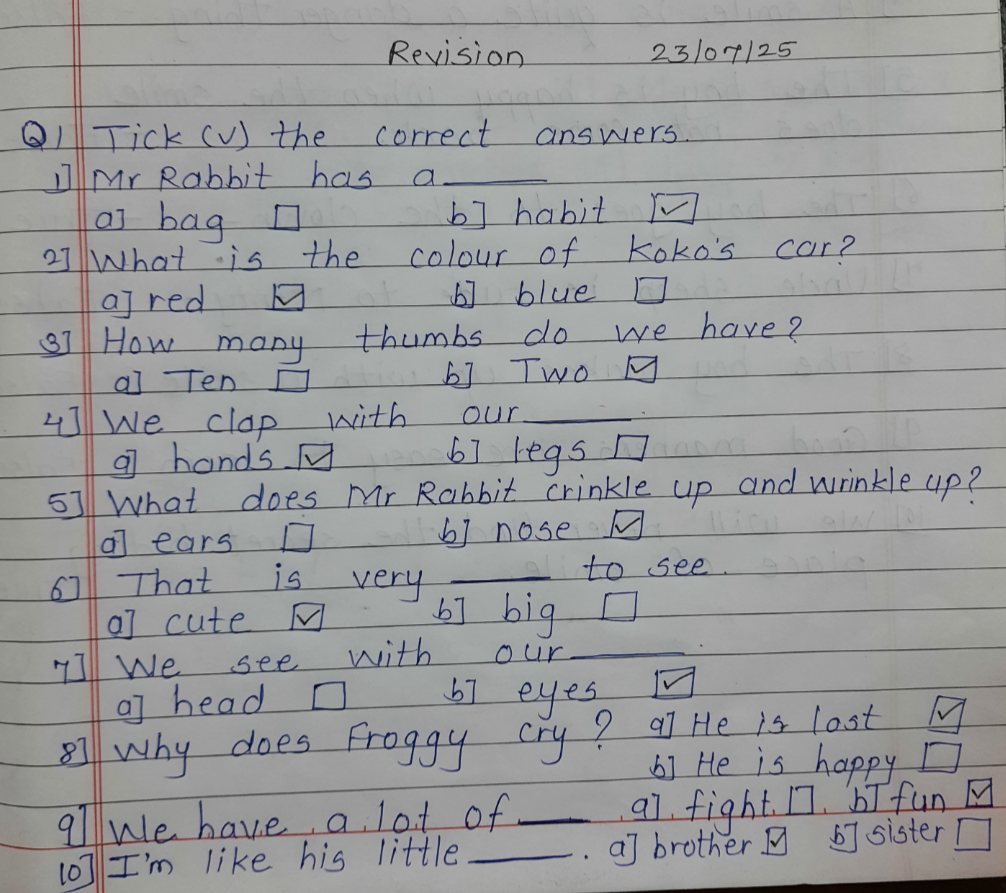 Revision 23/07/25
Q1 Tick (√) the correct answers.
1] Mr Rabbit has a ______
a] bag ☐ b] habit ☑
2] What is the colour of Koko's car?
a] red ☑ b] blue ☐
3] How many thumbs do we have?
a] Ten ☐ b] Two ☑
4] We clap with our ______.
a] hands ☑ b] legs ☐
5] What does Mr Rabbit crinkle up and wrinkle up?
a] ears ☐ b] nose ☑
6] That is very ______ to see.
a] cute ☑ b] big ☐
7] We see with our ______.
a] head ☐ b] eyes ☑
8] Why does Froggy cry? a] He is lost ☑
b] He is happy ☐
9] We have a lot of ____ a] fight ☐ b] fun ☑
10] I'm like his little ______. a] brother ☑ b] sister ☐